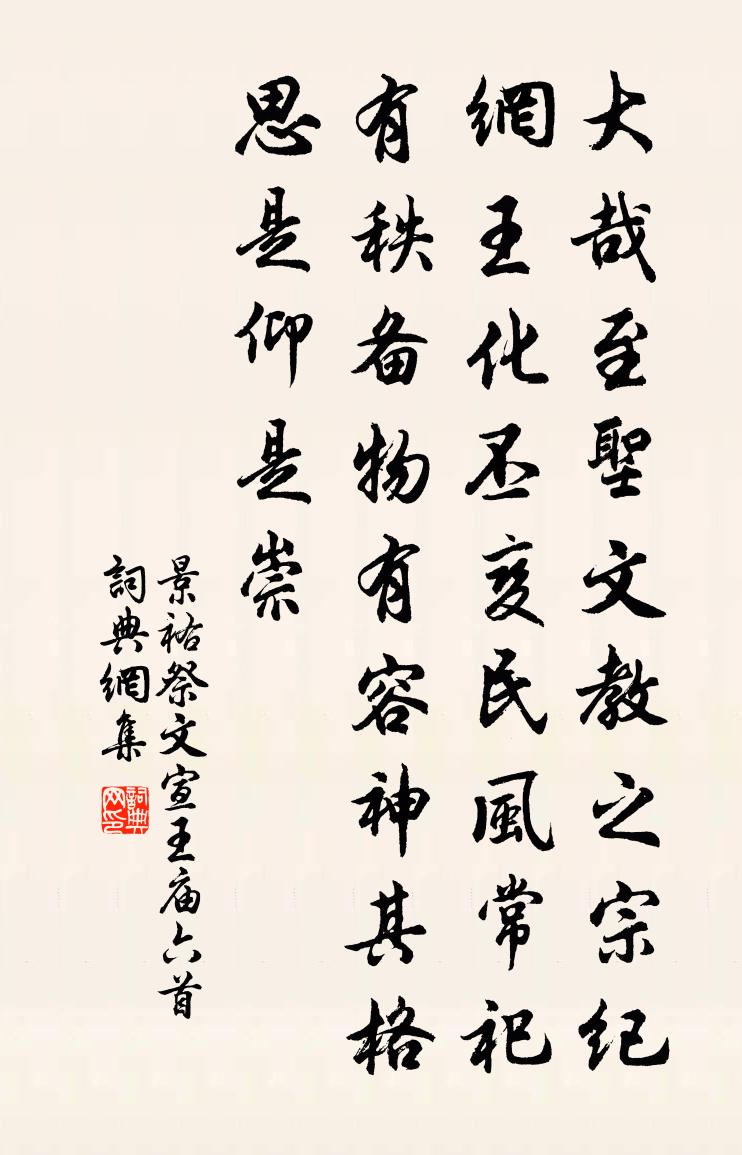 大哉至聖文教之宗紀
網王化丕变民風常祀
有秩备物有容神其格
思是仰是崇
景祐祭文宣王庙六首
詞典網集
詞典网印